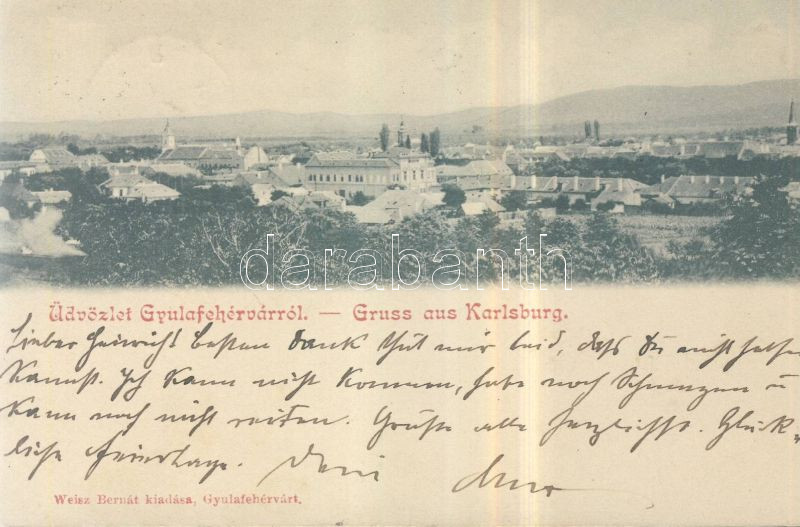 darabanth
Üdvözlet Gyulafehérvárról. — Gruss aus Karlsburg.
Lieber Heinrich! Besten Dank Thut mir leid, daß Du nicht helfen
Kannst. Ich kann nicht kommen, habe noch Schmerzen u
kann noch nicht reiten. Grüße alle herzlichst. Glück-
liche Feiertage. Dein
Weisz Bernát kiadása, Gyulafehérvárt.